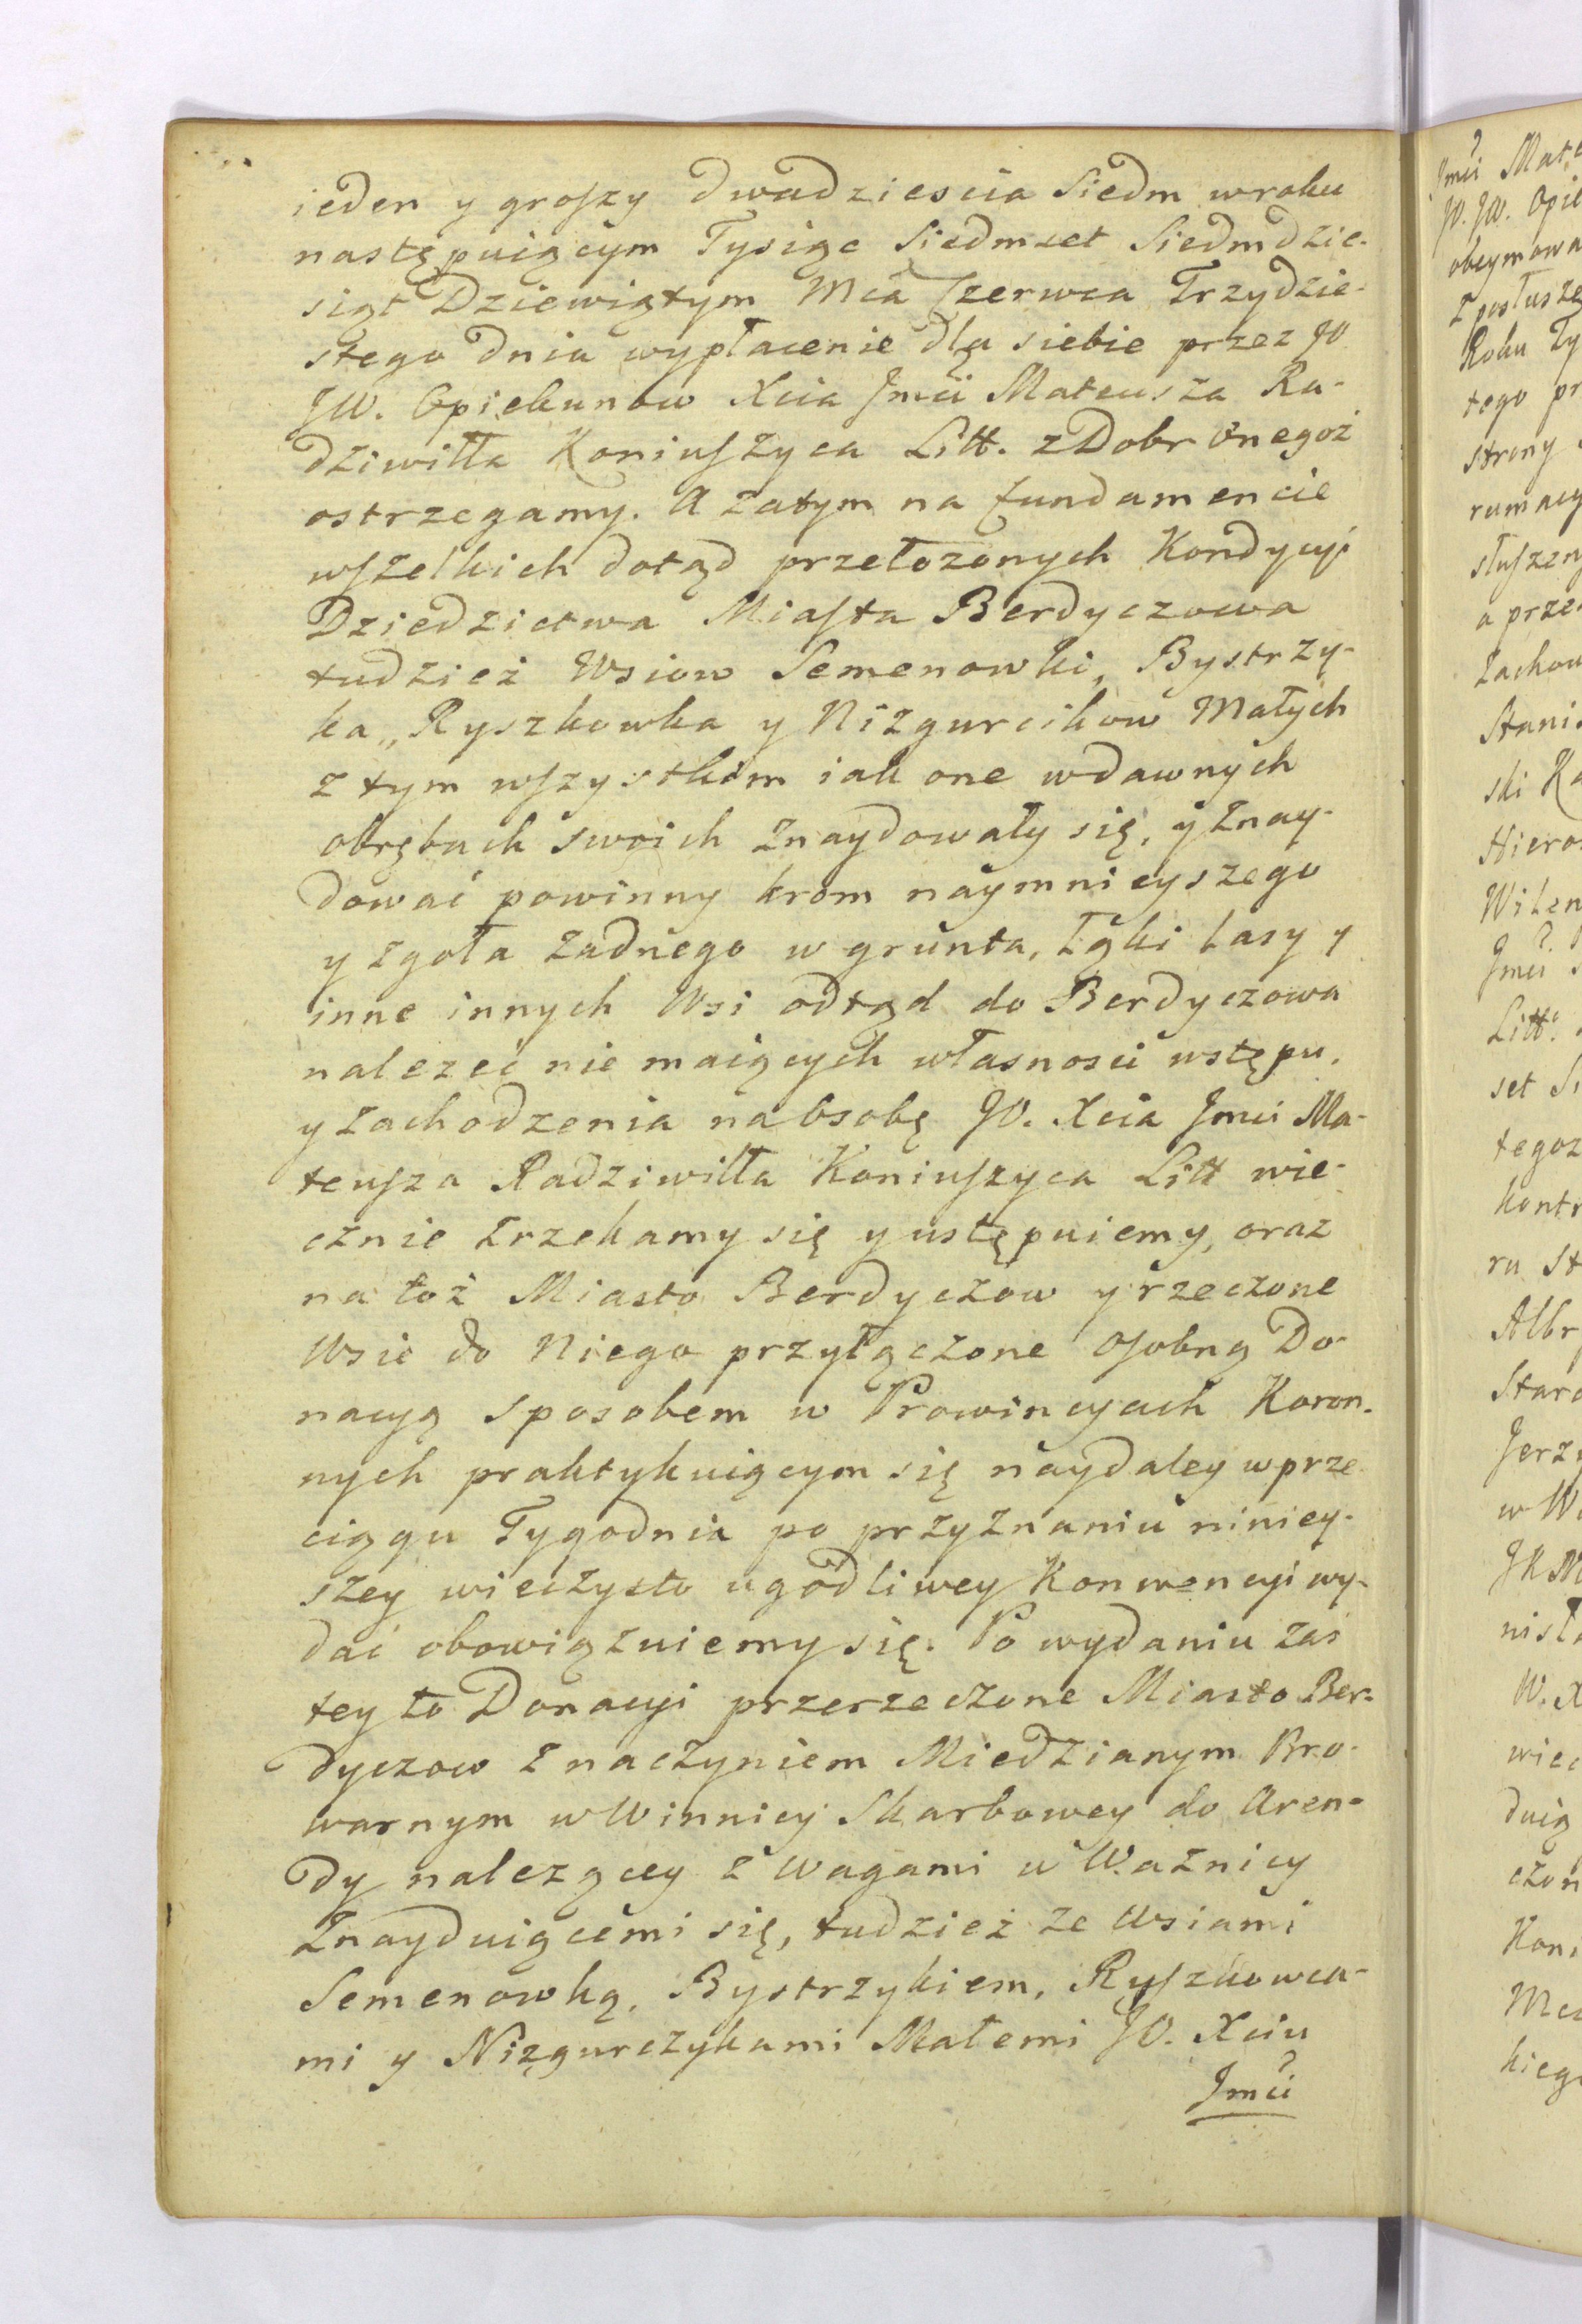 ieden y groszy dwudziestia Siedm w roku
następuiącym Tysiąc Siedmset Siedmdzie-
siąt Dziewiątym Mca Czerwca Trzydzie-
stego dnia wypłacenie dla siebie przez JO
JW. Opiekunow Xcia Jmci Mateusza Ra-
dziwiłła Koniuszyca Litt. z Dobr onegoż
ostrzegamy. A zatym na fundamencie
wszelkich dotąd przełozonych Kondycyi
Dziedzictwa Miasta Berdyczowa
tudzież Wsiow Semenowki, Bystrzy-
ka, Ryszkowka y Nizgurcikow Małych
z tym wszystkim iak one wdawnych
obrębach swoich znaydowały się, y znay-
dować powinny krom naymnieyszego
y zgoła zadnego w grunta, Łąki Lasy y
inne innych Wsi odtąd do Berdyczowa
nalezeć nie maiących własnosci wstępu,
y zachodzenia na Osobę JO. Xcia Jmci Ma-
teusza Radziwiłła Koniuszyca Litt wie-
cznie zrzekamy się y ustępuiemy, oraz
na toż Miasto Berdyczow y rzeczone
Wsie do Niego przyłączone osobną Do-
nacyą sposobem w Prowincyach Koron-
nych praktykuiącym się naydaley w prze
ciągu Tygodnia po przyznaniu niniey-
szey wieczysto ugodliwey Konwencyi wy-
dać obowiązuiemy się. Po wydaniu zaś
tey to Donacyi przerzeczone Miasto Ber-
dyczow z naczyniem Miedzianym Bro-
warnym w Winnicy Skarbowey do Aren-
dy nalezącey z Wagami w Waznicy
Znayduiącemi się, tudzież ze Wsiami
Semenowką, Bystrzykiem, Ryszkowca-
mi y Nizgurczykami Małemi JO. Xciu
Jmci
Jmci
JO. JW.
obeymowa
Roku
tego
strony
Stani
ski
Litt.
set
tegoz
Albr
w
W. X